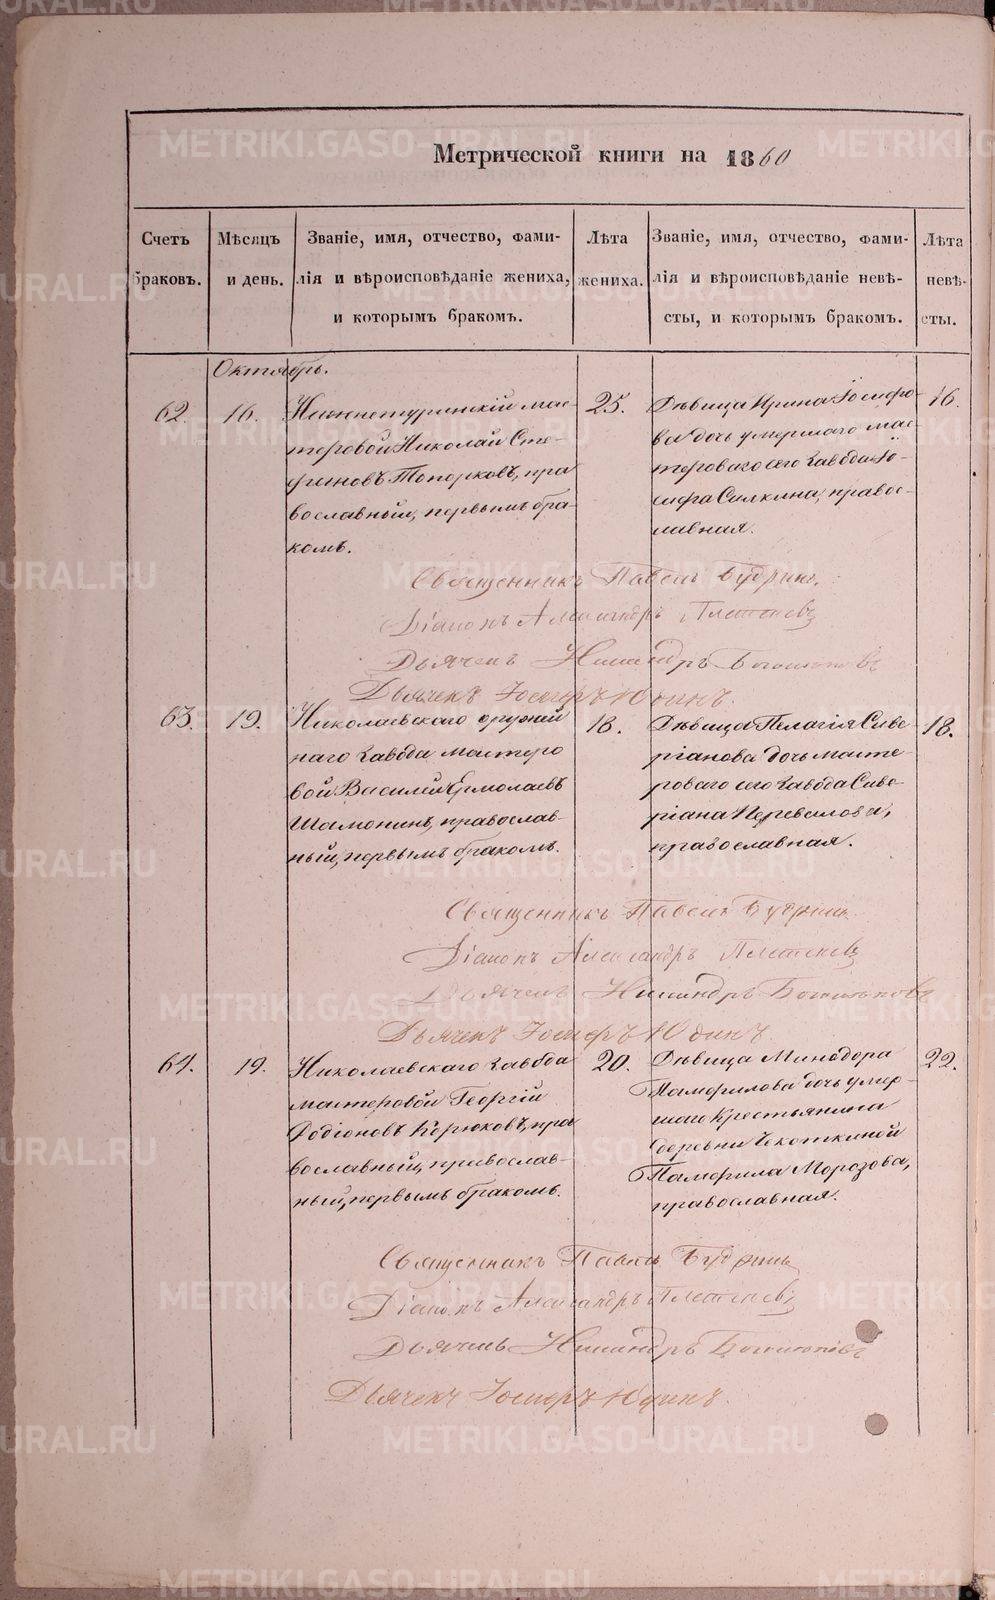 Метрической книги на 1860
Счетъ браковъ.
Мѣсяцъ и день.
Званіе, имя, отчество, фами-
лія и вѣроисповѣданіе жениха,
и которымъ бракомъ.
Лѣта жениха.
Званіе, имя, отчество, фами-
лія и вѣроисповѣданіе невѣ-
сты, и которымъ бракомъ.
Лѣта невѣ-
сты.
Октябрь.
62.
16.
Нижнетуринскій мас-
теровой Николай Сте-
фановъ Топорковъ, пра
вославный, первымъ бра-
комъ.
25.
Дѣвица Ирина Іосифо-
ва дочь умершаго мас-
тероваго сего завода Іо-
сифа Силкина, правос-
лавная.
16.
Священникъ Павелъ Будринъ.
Діаконъ Александръ Плетеневъ
Дьячекъ Никандръ
Дьячекъ Іосифъ Юдинъ.
63.
19.
Николаевскаго оружей
наго завода мастеро
вой Василій Ермолаевъ
Шамонинъ, православ-
ный, первымъ бракомъ.
18.
Дѣвица Пелагія Саве-
ріанова дочь масте-
роваго сего завода Саве-
ріана Перевалова,
православная.
18.
Священникъ Павелъ Будринъ
Діаконъ Александръ Плетеневъ
Дьячекъ Никандръ
Дьячекъ Іосифъ Юдинъ.
64.
19.
Николаевскаго завода
мастеровой Георгій
Родіоновъ Корюковъ, пра
вославный, православ-
ный, первымъ бракомъ.
20.
Дѣвица Минодора
Памфилова дочь умер-
шаго крестьянина
деревни Чекоткиной
Памфила Морозова,
православная.
22.
Священникъ Павелъ Будринъ
Діаконъ Александръ Плетеневъ
Дьячекъ Никандръ
Дьячекъ Іосифъ Юдинъ.
METRIKI.GASO-URAL.RU